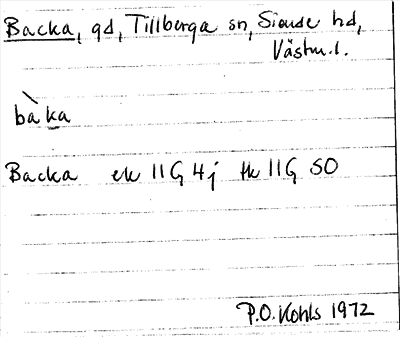 Backa, gd, Tillberga sn, Siende hd,
Västm.l.
bàka
Backa ek 11G 4j tk 11G SO
P.O. Kohls 1972